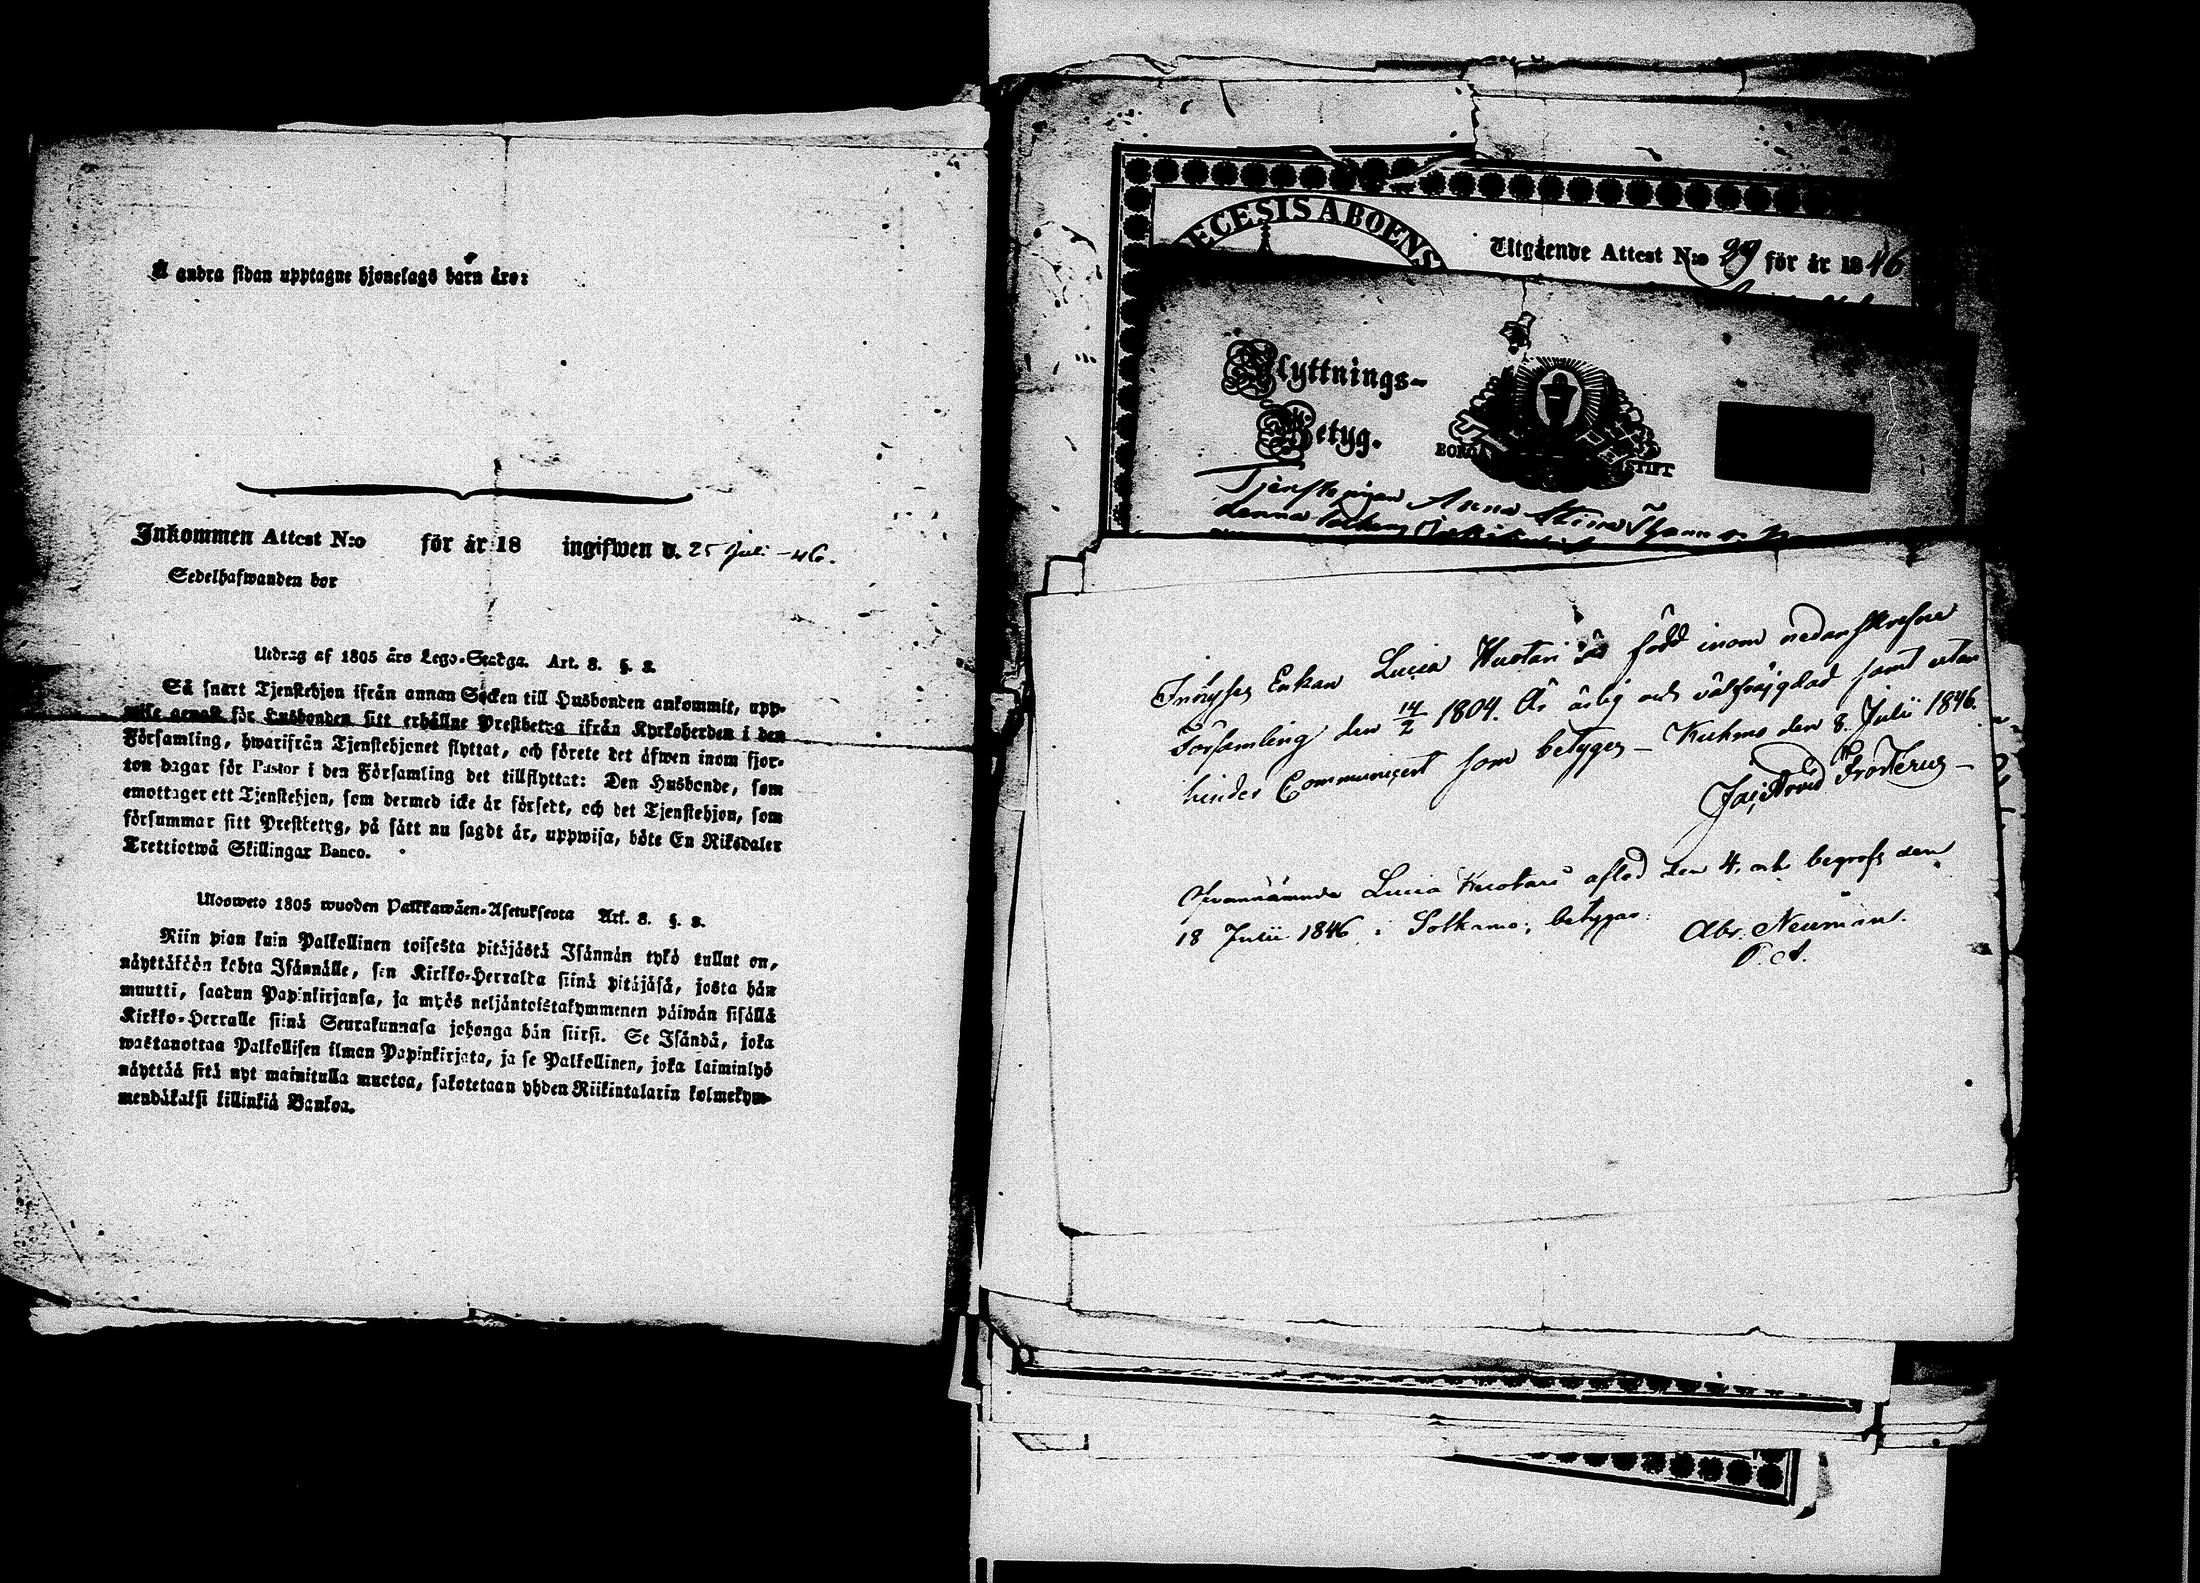 Å andra sidan upptagne hjonelags barn äro:
Inkommen Attest N:o för år 18 ingifwen d. 25 Juli -46.
Sedelhafwanden bor
Utdrag af 1805 års Lego-Stadga. Art. 8. §. 8.
Så snart Tjenstehjon ifrån annan Socken till Husbonden ankommit, upp-
wise genast för Husbonden sitt erhållne Prestbetyg ifrån Kyrkoherden i den
Församling, hwarifrån Tjenstehjonet flyttat, och förete det äfwen inom fjor-
ton dagar för Pastor i den Församling det tillflyttat: Den Husbonde, som
emottager ett Tjenstehjon, som dermed icke är försedt, och det Tjenstehjon, som
försummar sitt Prestbetyg, på sätt nu sagdt är, uppwisa, böte En Riksdaler
Trettiotwå Skillingar Banco.
Ulosweto 1805 wuoden Palkkawäen-Asetuksesta Art. 8. §. 8.
Niin pian kuin Palkollinen toisesta pitäjästä Isännän tykö tullut on,
näyttäköön kohta Isännälle, sen Kirkko-Herralta siinä pitäjäsä, josta hän
muutti, saadun Papinkirjansa, ja myös neljäntoistakymmenen päiwän sisällä
Kirkko-Herralle siinä Seurakunnasa johonga hän siirsi. Se Isändä, joka
wastanottaa Palkollisen ilman Papinkirjata, ja se Palkollinen, joka laiminlyö
näyttää sitä nyt mainitulla muotoa, sakotetaan yhden Riikintalarin kolmekym-
mendäkaksi killinkiä Bankoa.
ECESIS ABOENS
Utgående Attest N:o 29 för år 1846
Flyttnings-
Betyg.
BORGÅ STIFT
Tjenstepigan Anna Stina
denna Sockens
Enkan Lucia Huotari är född inom nedanskrefne
Församling den 14/2 1804. Är ärlig och välfräjgdad samt utan
hinder Communicert som betygas – Kuhmo den 8. Julii 1846.
Jac. Arvid Frosterus –
Ofvannämnde Lucia Huotari afled den 4. och begrofs den
18 Julii 1846 i Sotkamo; betygar:
Abr. Neuman.
P. A.